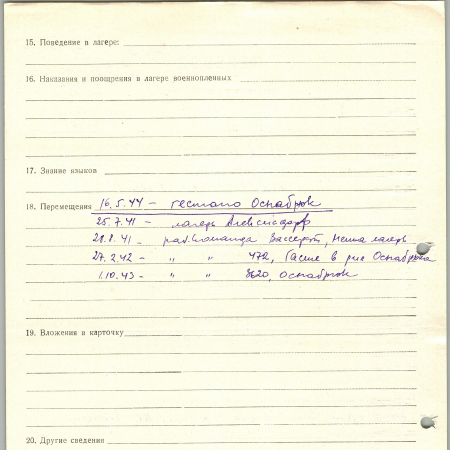 15. Поведение в лагере:
16. Наказания и поощрения в лагере военнопленных
17. Знание языков
18. Перемещения 16.5.44 – гестапо Оснабрюк
25.7.41 – лагерь Алексисдорф
28.8.41 – раб. команда Вассерот, Меша лагерь
27.2.42 – " " 472, Гасте в р-не Оснабрюка
1.10.43 – " " 3620, Оснабрюк
19. Вложения в карточку
20. Другие сведения